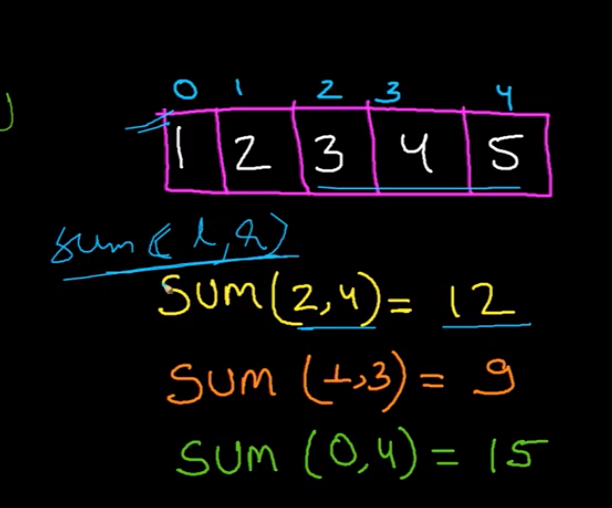 0 1 2 3 4
1 2 3 4 5
sum(l,r)
SUM(2,4)= 12
SUM (1,3)= 9
SUM (0,4)= 15